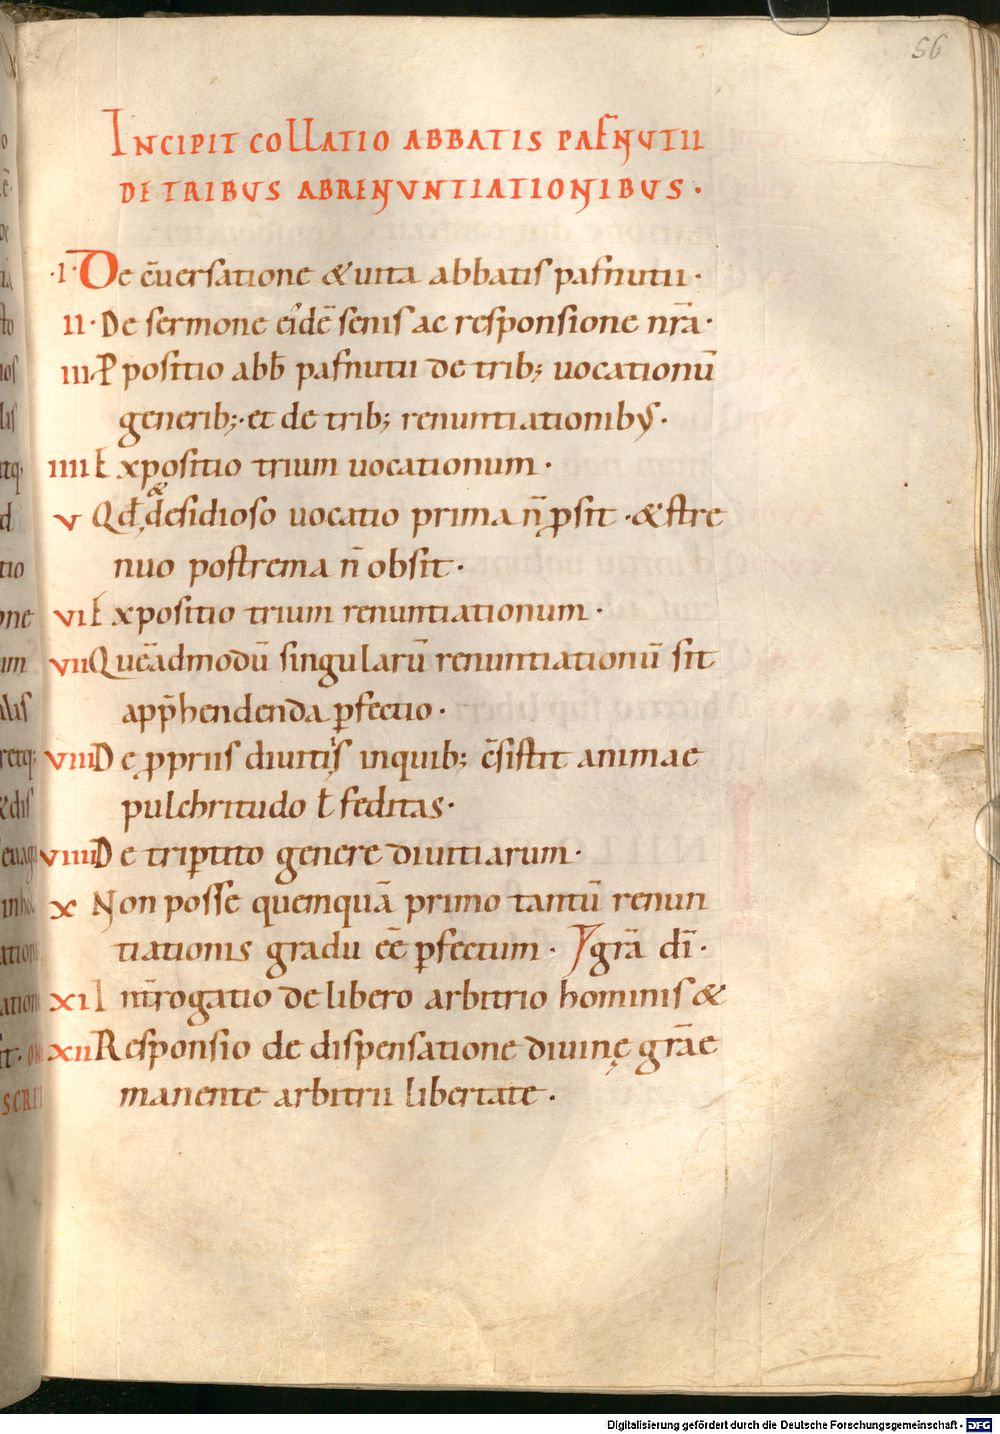 56
INCIPIT COLLATIO ABBATIS PAFNUTII
DE TRIBUS ABRENUNTIATIONIBUS ·
·I· De c̄uersatione &uita abbatis pafnutii ·
II · De sermone ei᾽dē senis ac responsione nr̄a ·
III P positio abb̄ pafnutii de trib; uocationū
generib; · et de trib; renuntiationibus ·
IIII Expositio trium uocationum ·
V Qd̄ & desidioso uocatio prima n̄ ꝓsit · &stre
nuo postrema n̄ obsit ·
VI Expositio trium renuntiationum ·
VII Quēadmodū singularū renuntiationū sit
app̄hendenda ꝑfectio ·
VIII De ꝓpriis diuitiis inquib; c̄sistit animae
pulchritudo ł feditas ·
VIIII De triptito genere diuitiarum ·
X Non posse quemquā primo tantū renun
tiationis gradu ēē ꝑfectum · grā dī ·
XI Int̄rogatio de libero arbitrio hominis &
XII Responsio de dispensatione diuinę grāe
manente arbitrii libertate ·
Digitalisierung gefördert durch die Deutsche Forschungsgemeinschaft · DFG